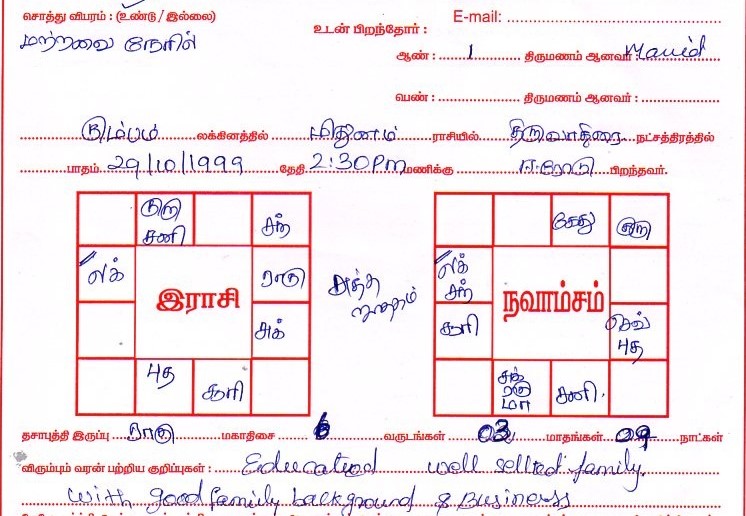 சொத்து விபரம் : (உண்டு / இல்லை) E-mail:
மற்றவை நேரில் உடன் பிறந்தோர் :
ஆண் : 1 திருமணம் ஆனவர் : Maried
பெண் : திருமணம் ஆனவர் :
கும்பம் லக்கினத்தில் மிதுனம் ராசியில் திருவாதிரை நட்சத்திரத்தில்
பாதம் 29/10/1999 தேதி 2:30Pm மணிக்கு ஈரோடு பிறந்தவர்.
குரு சனி சந் கேது குரு
லக் ராகு லக் சந்
இராசி சுத்த நவாம்சம்
சுக் சூரி செவ் புத
புத சூரி சுக் ராகு மா சனி
தசாபுத்தி இருப்பு ராகு மகாதிசை 6 வருடங்கள் 03 மாதங்கள் 09 நாட்கள்
விரும்பும் வரன் பற்றிய குறிப்புகள் : Educated well sellted family.
with good family background & Business